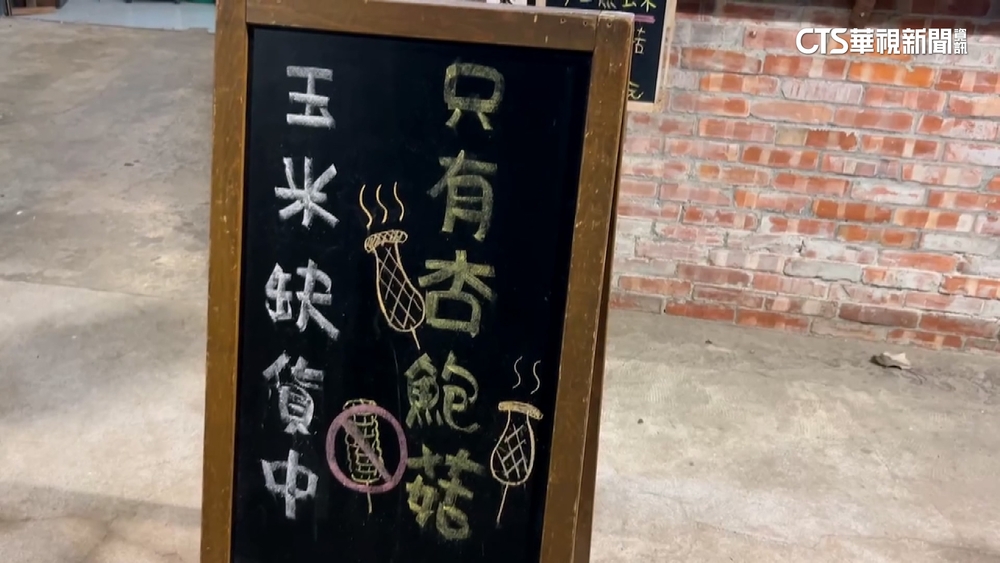 只有杏鮑菇
玉米缺貨中
CTS華視新聞資訊